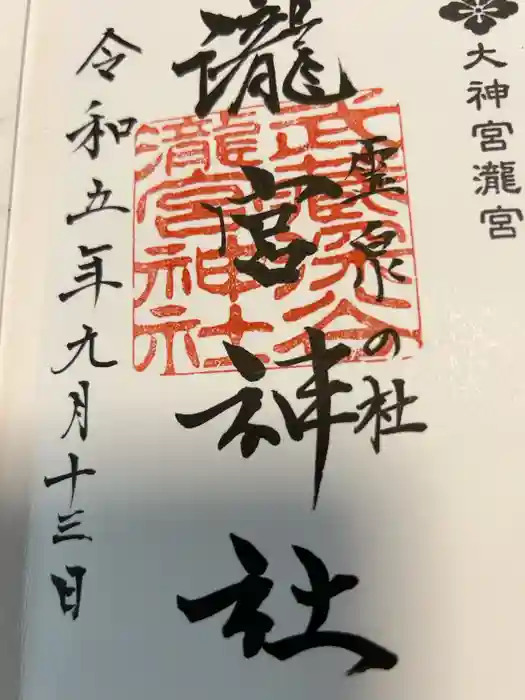 大神宮瀧宮
霊泉の社
瀧宮神社
武蔵深谷
瀧宮神社
令和五年九月十三日